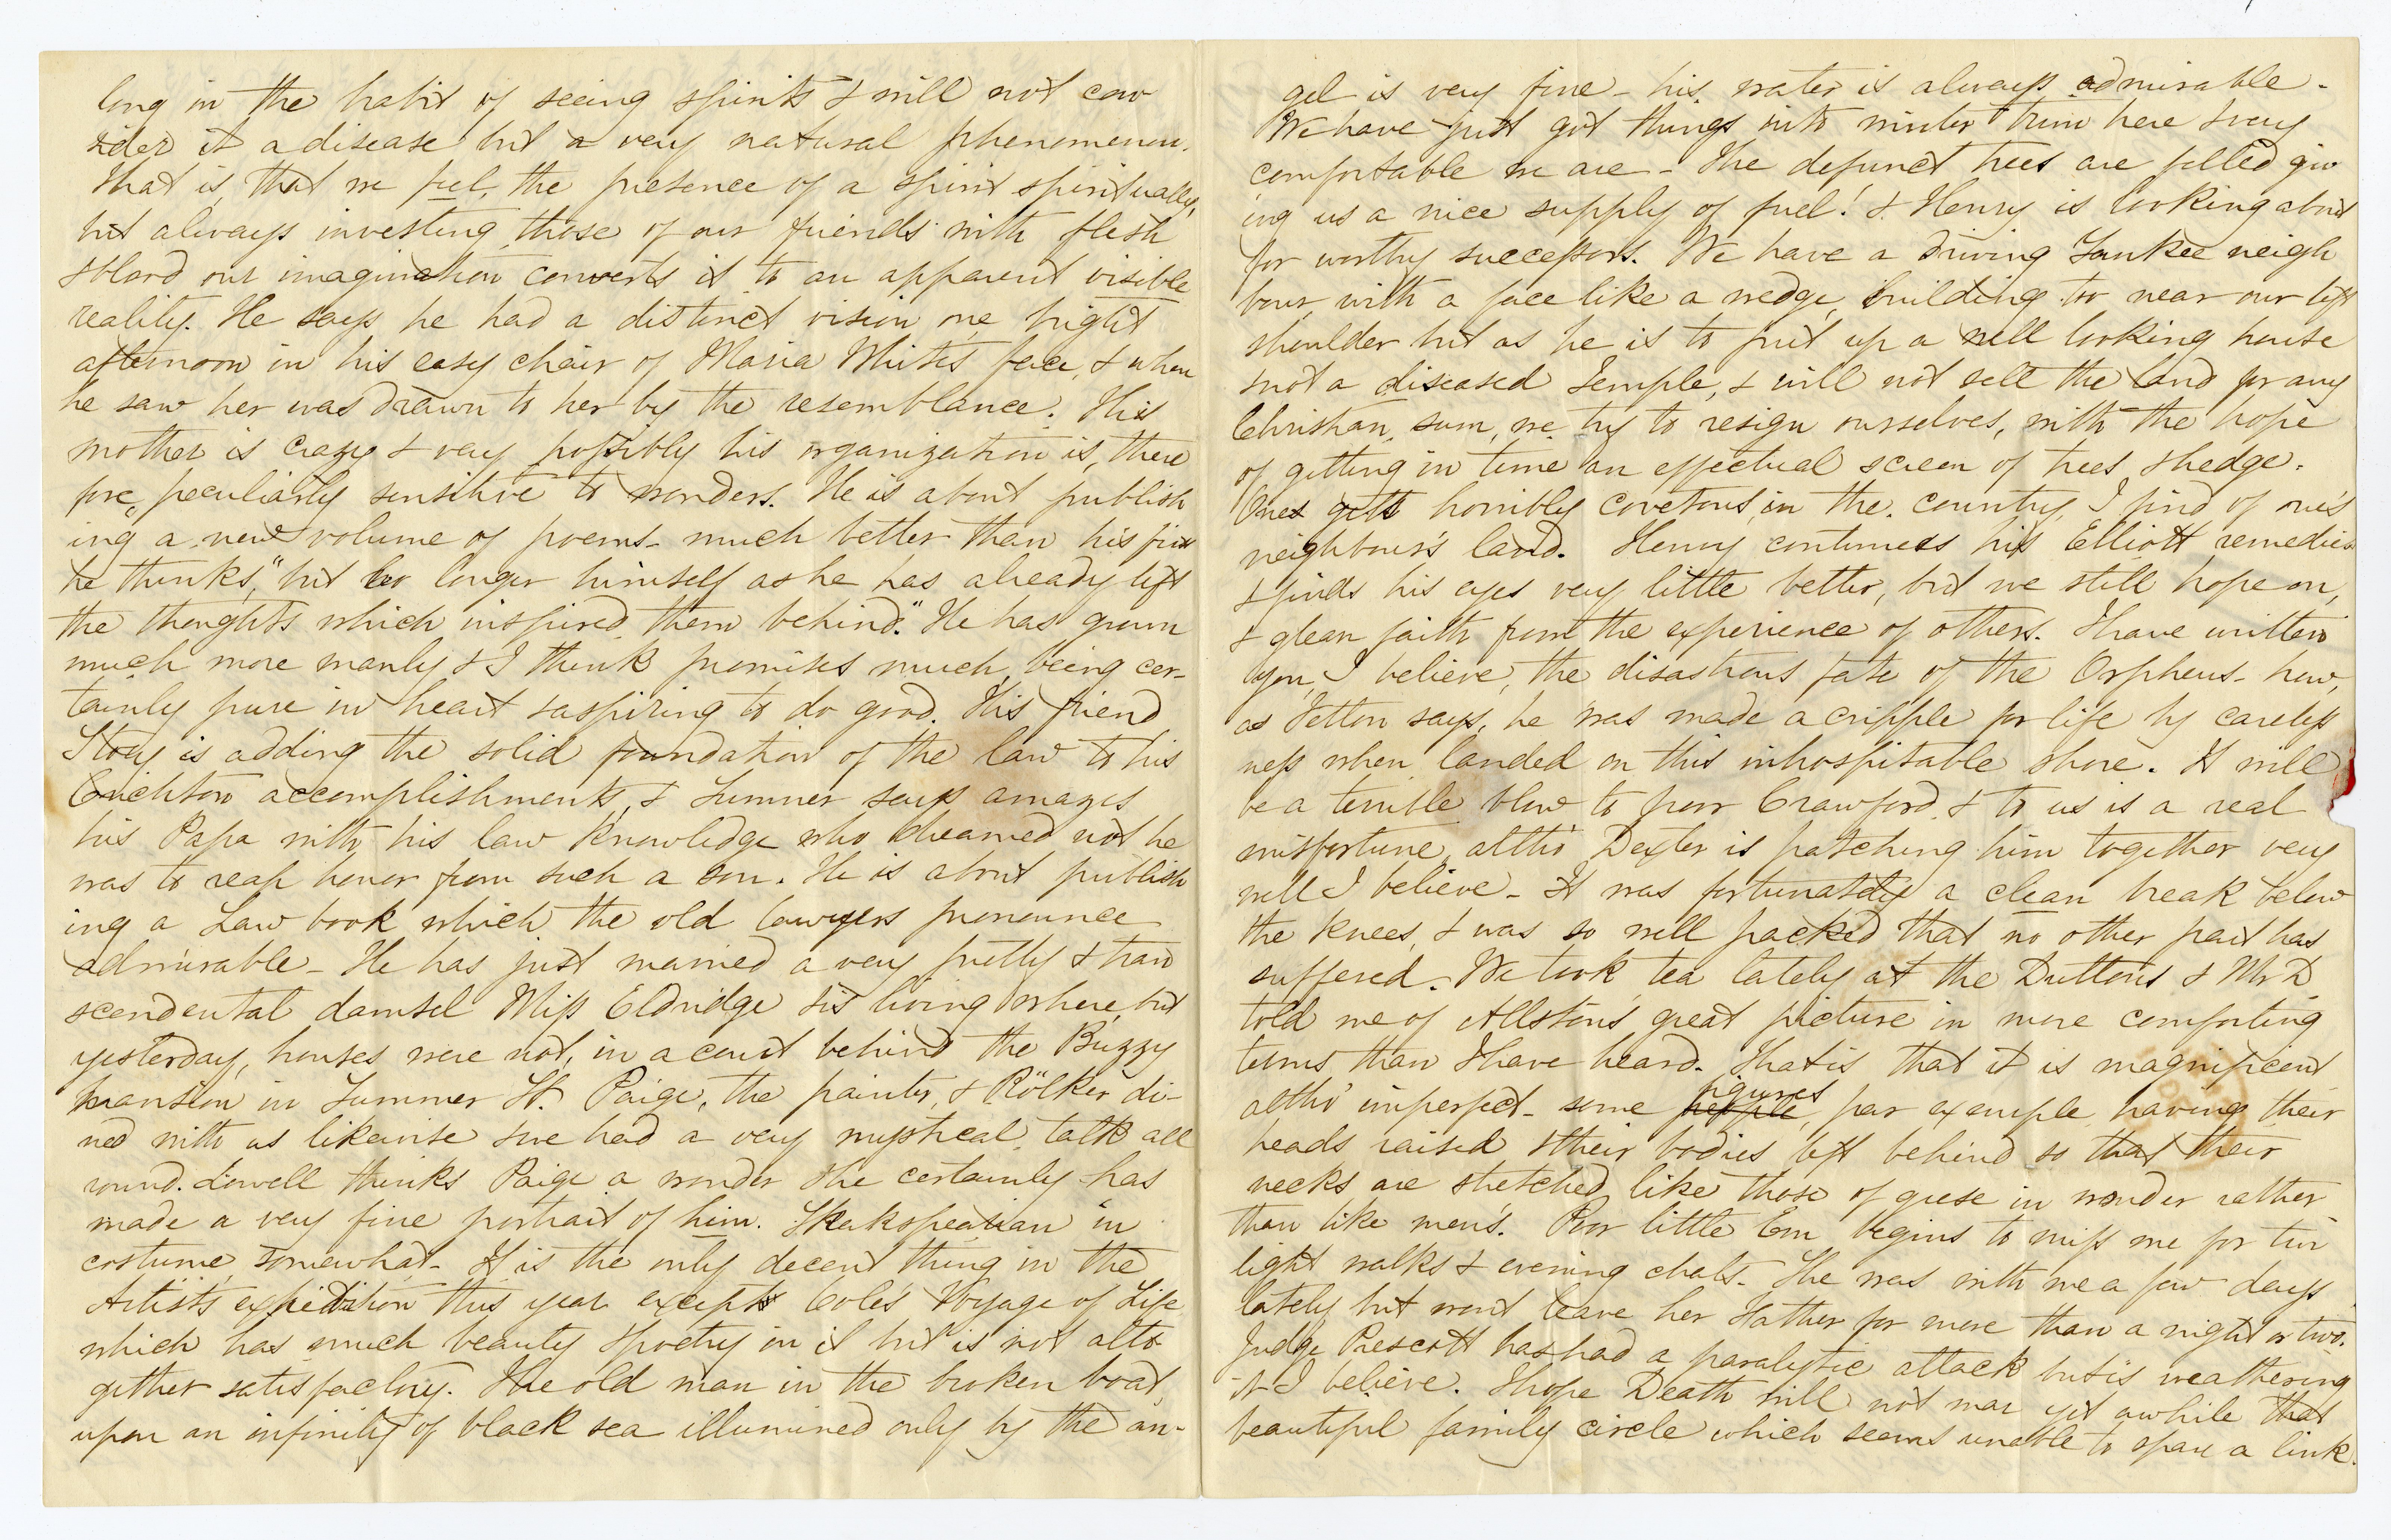 long in the habit of seeing spirits & will not con
sider it a disease but a very natural phenomenon.
That is, that we feel, the presence of a spirit spiritually,
but always investing those of our friends with flesh
& blood our imagination converts it to an apparent visible
reality. He says he had a distinct vision one bright
afternoon in his easy chair of Maria White's face, & when
he saw her was drawn to her by the resemblance. His
mother is crazy & very possibly his organization is, there
fore, peculiarly sensitive to wonders. He is about publish
ing a new volume of poems - much better than his first
he thinks, "but no longer himself as he has already left
the thoughts which inspired them behind." He has grown
much more manly & I think promises much, being cer-
tainly pure in heart & aspiring to do good. His friend
Story is adding the solid foundation of the law to his
Crichton accomplishments, & Sumner says amazes
his Papa with his law knowledge who dreamed not he
was to reap honor from such a son. He is about publish
ing a Law book which the old lawyers pronounce
admirable - He has just married a very pretty & tran
scendental damsel Miss Eldridge & is living where, but
yesterday, houses were not, in a court behind the Buzzy
mansion in Summer St. Paige, the painter, & Rölker di-
ned with us likewise & we had a very mystical talk all
round. Lowell thinks Paige a wonder & he certainly has
made a very fine portrait of him. Shakspearian in
costume, somewhat - It is the only decent thing in the
Artists expedition this year except Cole's Voyage of Life
which has much beauty & poetry in it but is not alto
gether satisfactory. The old man in the broken boat,
upon an infinity of black sea illumined only by the an-
gel is very fine - his water is always admirable -
We have just got things into winter trim here & very
comfortable we are - The defunct trees are felled giv
ing us a nice supply of fuel! & Henry is looking about
for worthy successors. We have a driving Yankee neigh
bour, with a face like a wedge, building too near our left
shoulder but as he is to put up a well looking house
& not a diseased temple, & will not sell the land for any
Christian sum, we try to resign ourselves, with the hope
of getting in time an effectual screen of trees & hedge.
One gets horribly covetous, in the country, I find of one's
neighbour's land. Henry continues his Elliott remedies
& finds his eyes very little better, but we still hope on,
& glean faith from the experience of others. I have written
you, I believe, the disastrous fate of the Orpheus - how,
as Felton says, he was made a cripple for life by careless
ness when landed on this inhospitable shore. It will
be a terrible blow to poor Crawford & to us is a real
misfortune, altho' Dexter is patching him together very
well I believe - It was fortunately a clean break below
the knees, & was so well packed that no other part has
suffered. We took tea lately at the Dutton's & Mr D
told me of Allston's great picture in more comforting
terms than I have heard. That is that it is magnificent
altho' imperfect - some people figures, par exemple, having their
heads raised & their bodies left behind so that their
necks are stretched like those of geese in wonder rather
than like men's. Poor little Em begins to miss me for twi
light walks & evening chats - She was with me a few days
lately but wont leave her Father for more than a night or two.
Judge Prescott has had a paralytic attack but is weathering
it I believe. I hope Death will not mar yet awhile that
beautiful family circle which seems unable to spare a link.